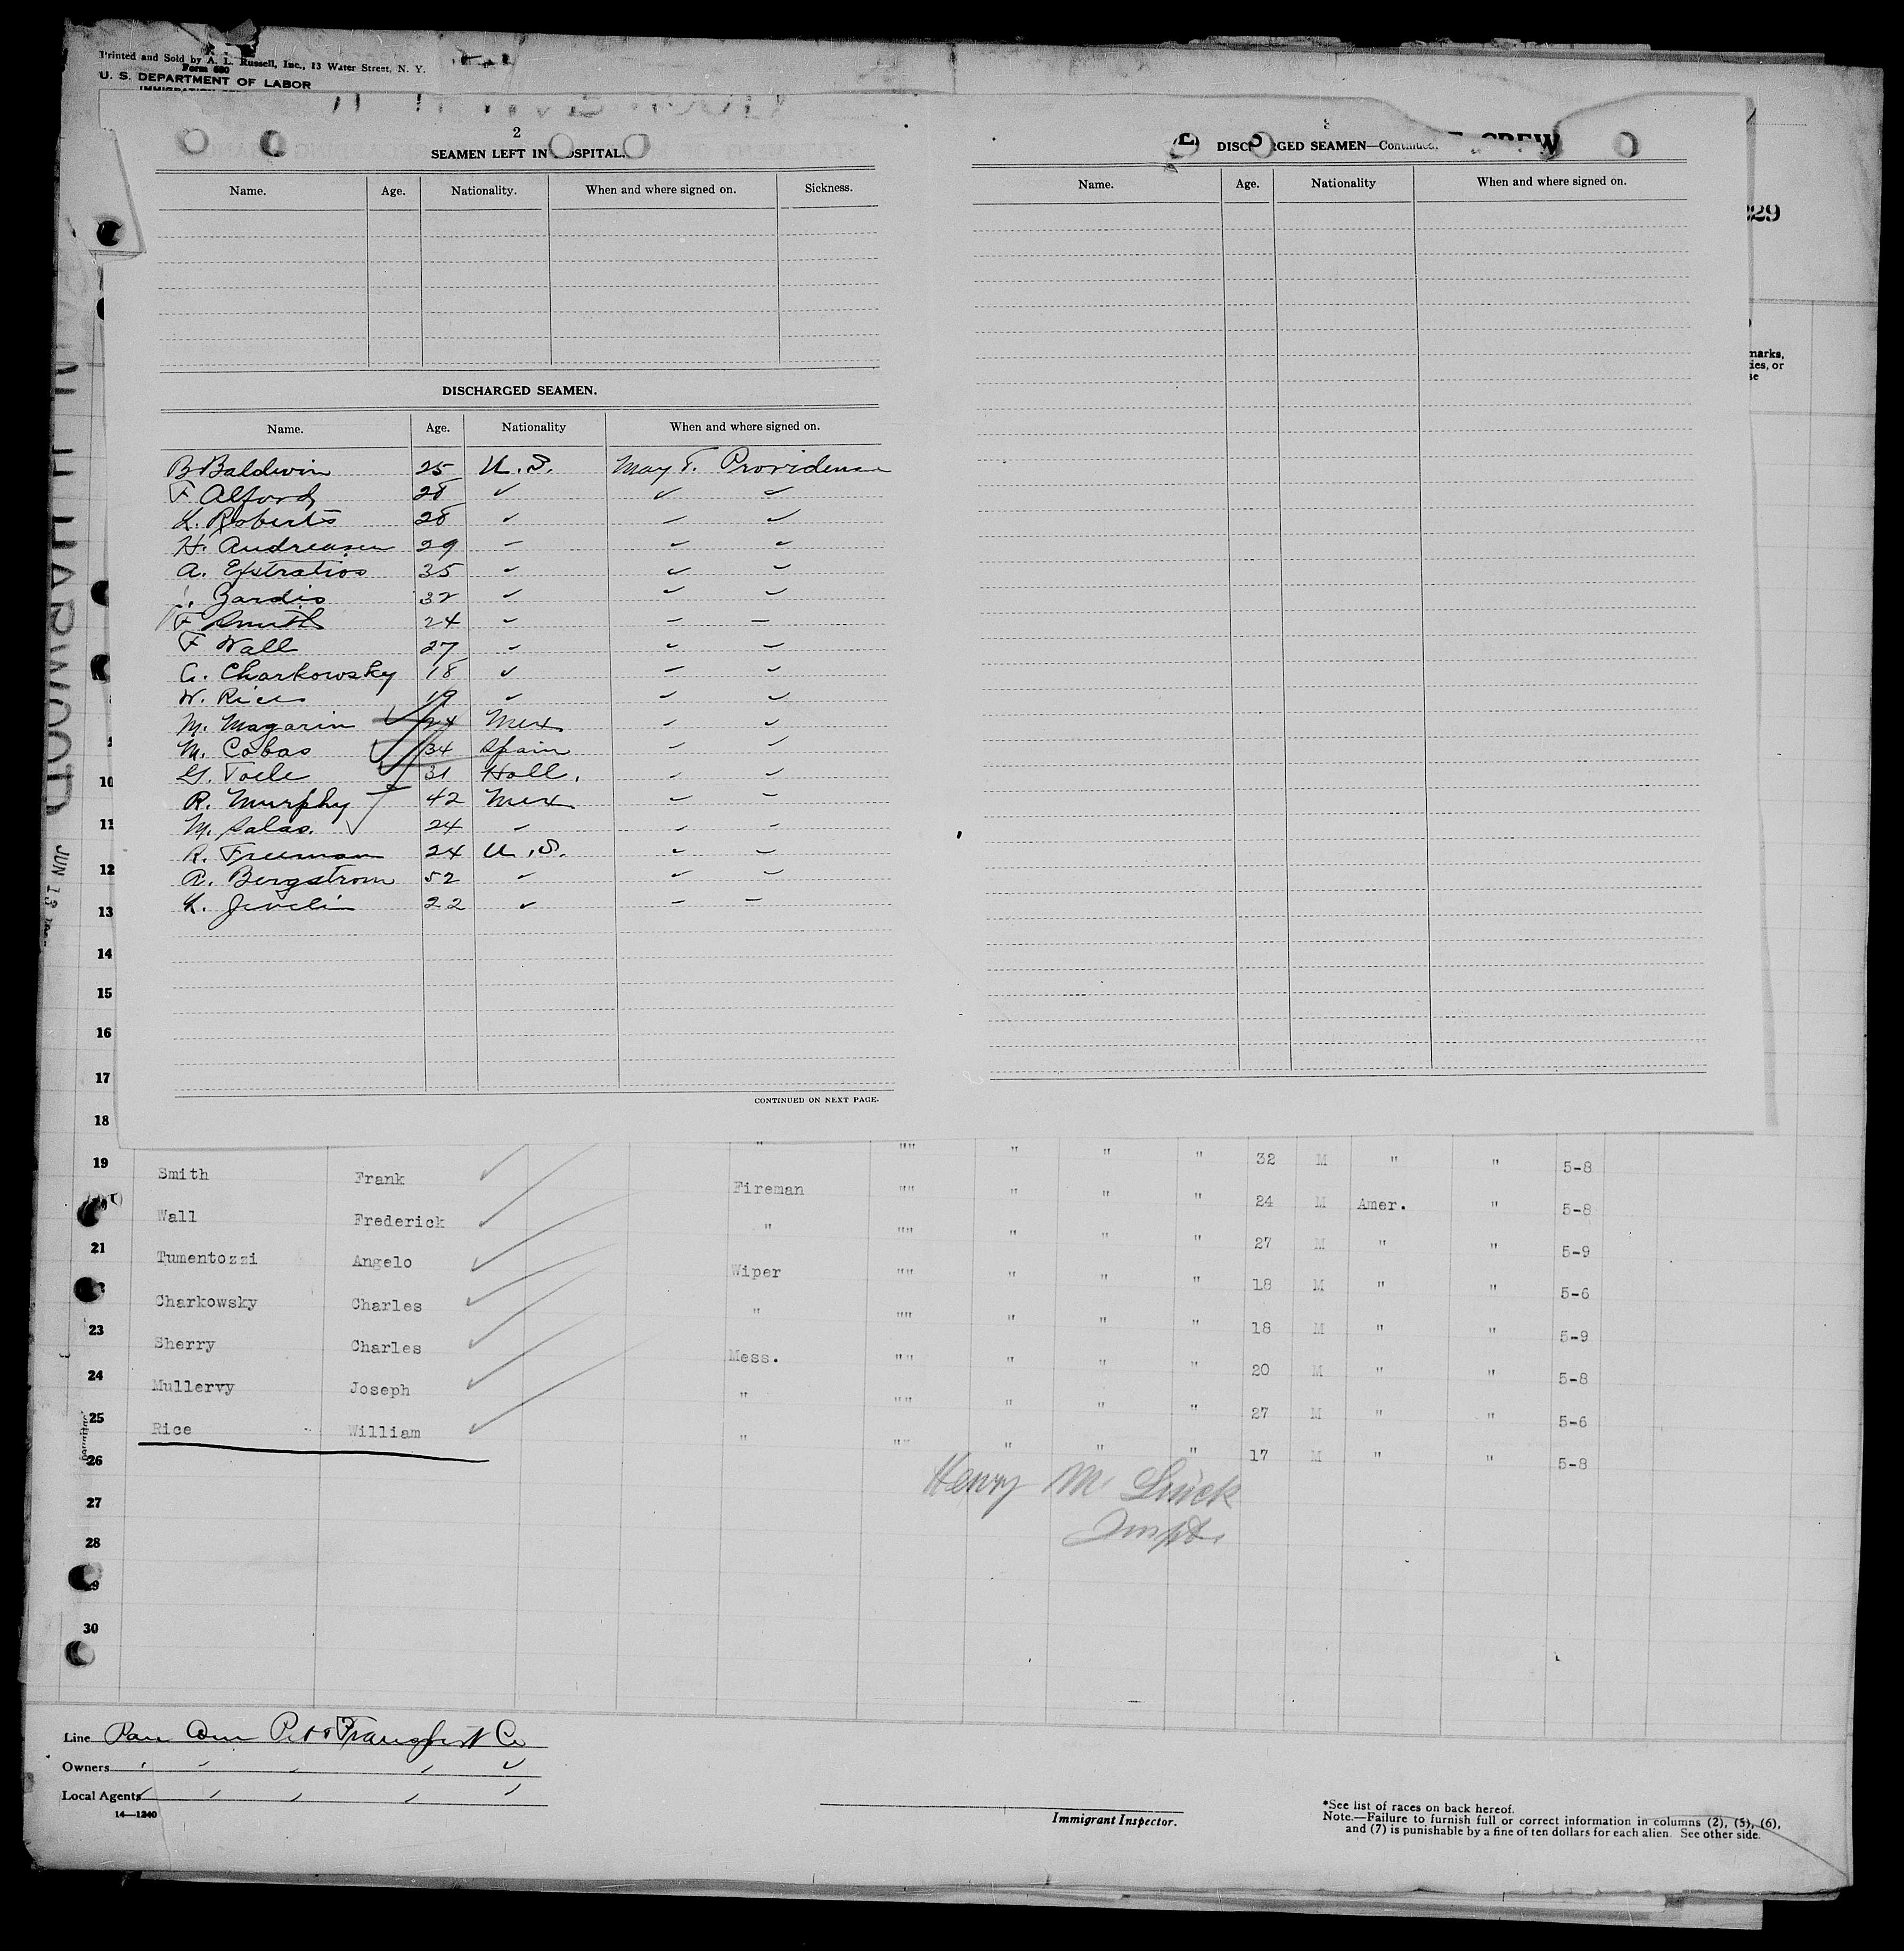 Printed and Sold by A. L. Russell, Inc., 13 Water Street, N. Y.
Form 680
U. S. DEPARTMENT OF LABOR
2
SEAMEN LEFT IN OSPITAL.
Name. Age. Nationality. When and where signed on. Sickness.
DISCHARGED SEAMEN.
Name. Age. Nationality When and where signed on.
B Baldwin 25 U.S. May 7. Providence
F Alford 28 ✓ ✓ ✓
L. Roberts 28 ✓ – ✓
H. Andreasen 29 – ✓ ✓
A. Efstratios 35 ✓ ✓ –
Zardis 32 ✓ ✓ ✓
F Smith 24 ✓ – –
F Wall 27 – ✓ –
C. Charkowsky 18 ✓ – ✓
W. Rice 19 ✓ – ✓
M. Magarin 24 Mex – ✓
M. Cobas 34 Spain – ✓
G. Toele 31 Holl. – ✓
R. Murphy 42 Mex ✓ –
M. Salas. 24 ✓ – –
R. Freeman 24 U.S. ✓ –
A. Bergstrom 52 ✓ ✓ –
K. Jevelin 22 ✓ – –
CONTINUED ON NEXT PAGE.
3
CREW
DISCH RGED SEAMEN—Continued.
Name. Age. Nationality When and where signed on.
229
marks,
ties, or
se
JUN 13
10
11
12
13
14
15
16
17
18
19 " "" " " " 32 M " " 5-8
Smith Frank Fireman "" " " " 24 M Amer. " 5-8
Wall Frederick " "" " " " 27 M " " 5-9
21 Tumentozzi Angelo Wiper "" " " " 18 M " " 5-6
Charkowsky Charles " "" " " " 18 M " " 5-9
23 Sherry Charles Mess. "" " " " 20 M " " 5-8
24 Mullervy Joseph " "" " " " 27 M " " 5-6
25 Rice William " "" " " " 17 M " " 5-8
26
Henry M
Inspt.
27
28
29
30
Line Pan Am Pet & Transport Co
Owners ✓ ✓ ✓ ✓ ✓
Local Agents ✓ ✓ ✓ ✓ ✓
14—1240
Immigrant Inspector.
*See list of races on back hereof.
Note.—Failure to furnish full or correct information in columns (2), (5), (6),
and (7) is punishable by a fine of ten dollars for each alien. See other side.